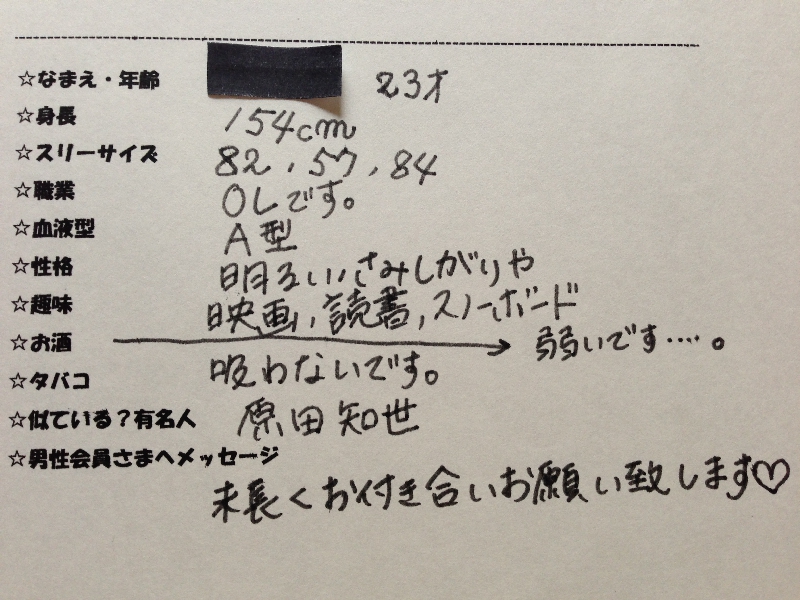 ☆なまえ・年齢 23才
☆身長 154cm
☆スリーサイズ 82,57,84
☆職業 OLです。
☆血液型 A型
☆性格 明るい,さみしがりや
☆趣味 映画,読書,スノーボード
☆お酒 → 弱いです‥‥。
☆タバコ 吸わないです。
☆似ている?有名人 原田知世
☆男性会員さまへメッセージ
末長くお付き合いお願い致します♡